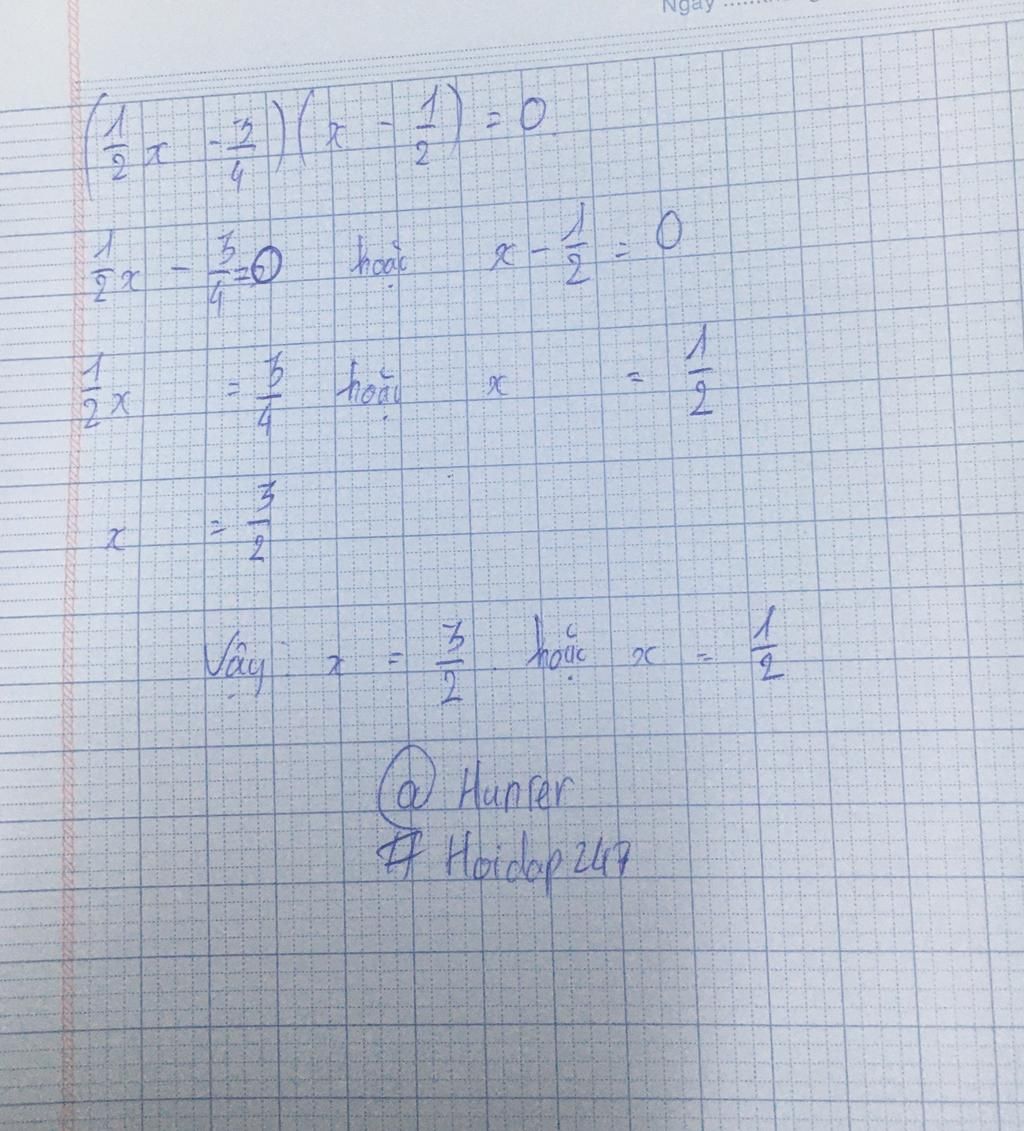 Ngày ........
(1/2 x - 3/4)(x - 1/2) = 0
1/2 x - 3/4 = 0 hoặc x - 1/2 = 0
1/2 x = 3/4 hoặc x = 1/2
x = 3/2
Vậy: x = 3/2 hoặc x = 1/2
@ Hunter
# Hoidap247